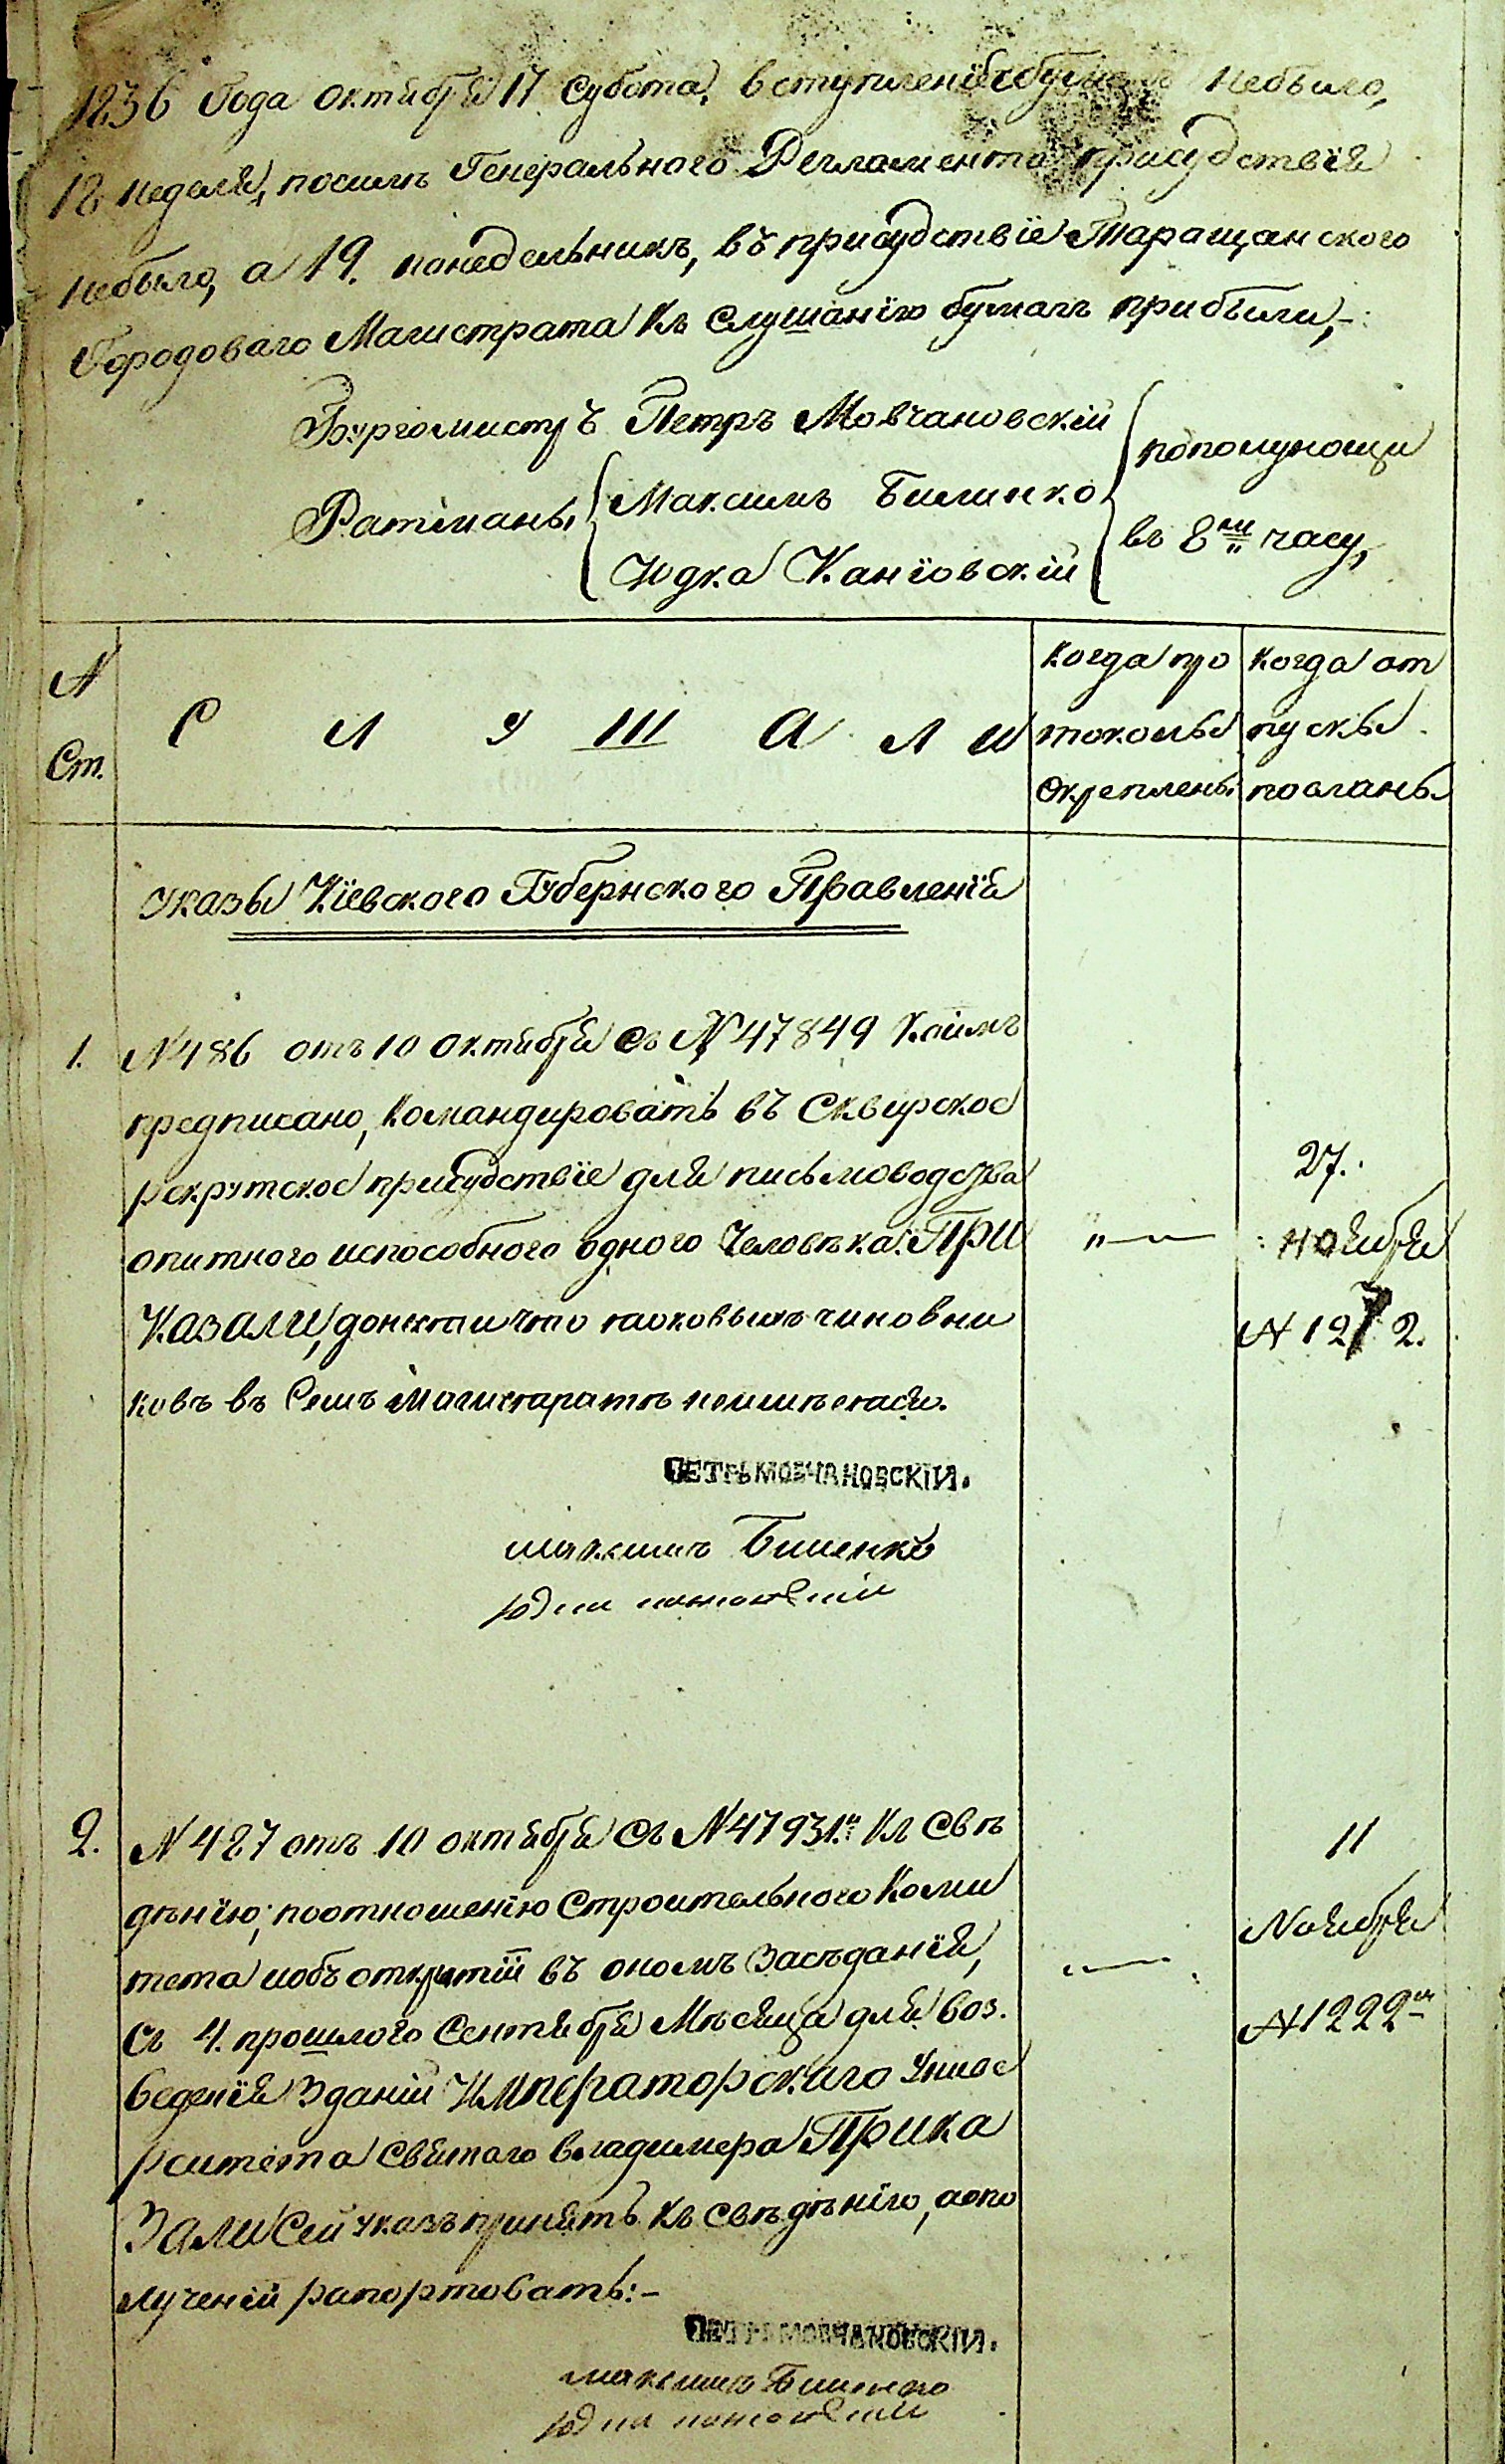 1836 Года Октября 17 Субота, вступленія бумагъ небыло,
18 неделя, посилъ Генерального Регламента присудствія
небыло, а 19. понедельникъ, въ присудствіе Таращанского
Городоваго Магистрата Къ Слушанію бумагъ прибыли,-:
Бургомистръ Петръ Мовчановскій
пополуночи
Ратманы Максимъ Билинко
въ 8мъ часу,
Юдка Каніовскій
N Ст.
С Л У Ш А Л И
Когда про
токолы
скреплены
Когда от
пуски
посланы
Указы Кіевского Губернского Правленія
1. N486 отъ 10 Октября съ N47849 Коимъ
предписано, Командировать въ Сквирское
рекрутское присудствіе для письмоводства
опитного испособного одного Человѣка: ПРИ
КАЗАЛИ, донести что таковыхъ чиновни
ковъ въ Семъ Магистратѣ неимѣется.
27.
ноября
N 1272.
ПЕТРЪ МОВЧАНОВСКІЙ.
Максимъ Биленко
2. N 487 отъ 10 октября съ N47931. Къ Свѣ
дѣнію; поотношенію Строительного Коми
тета иобъ открытіи въ ономъ Засѣданія,
съ 4. прошлого Сентября Мѣсяца для воз.
веденія Зданій Императорскаго Униве
рситета Святаго Владимера ПРИКА
ЗАЛИ Сей указъ принять Къ свѣдѣнію, аопо
лученіи рапортовать:-
11
Ноября
N1222
ПЕТРЪ МОВЧАНОВСКІЙ.
Максимъ Биленко